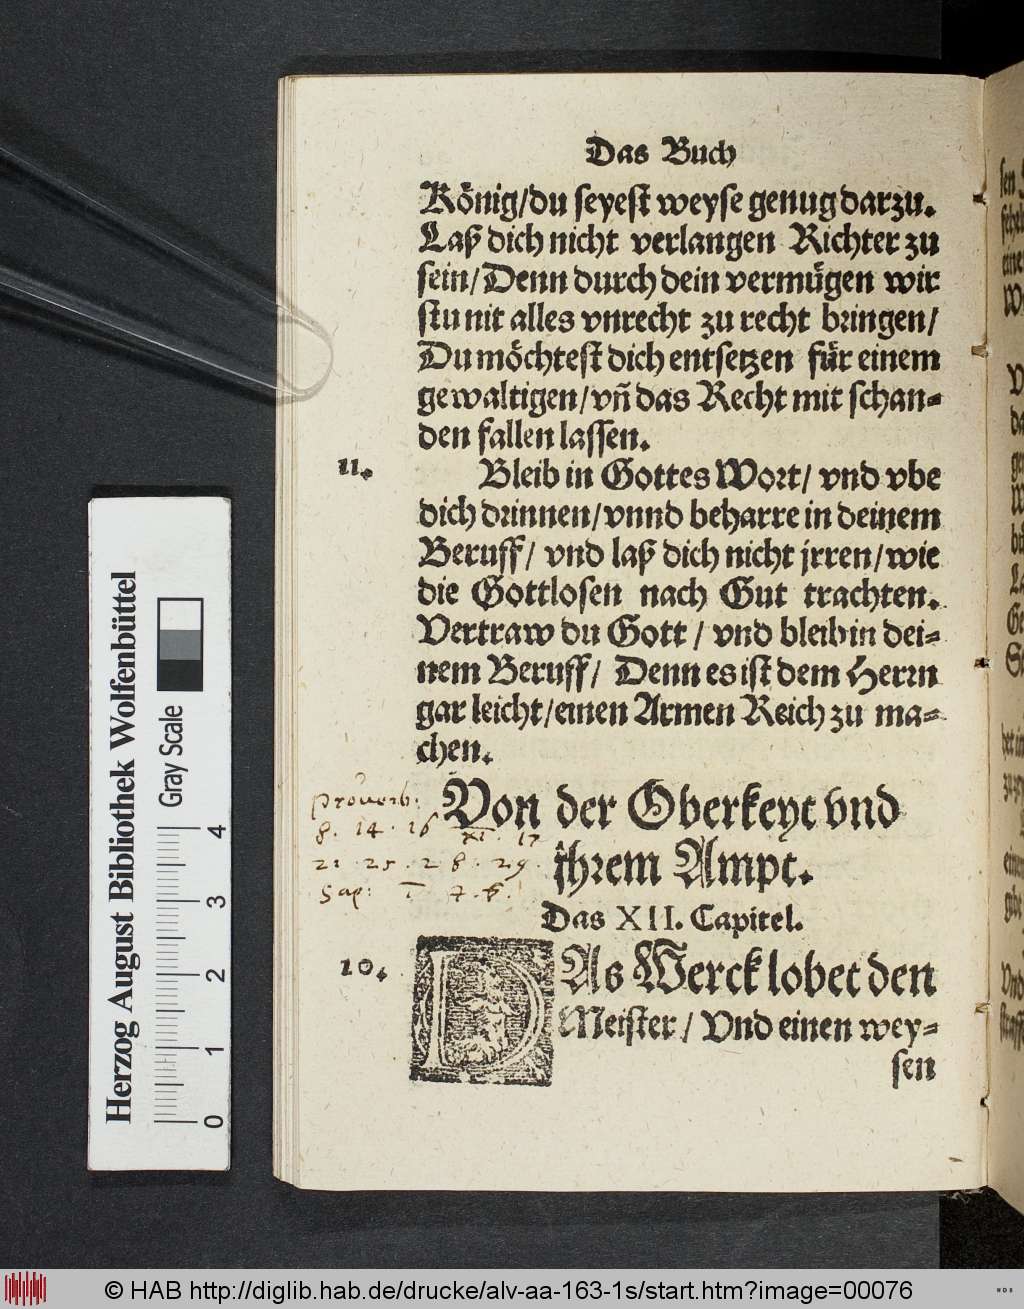 Das Buch
König/du seyest weyse genug darzu.
Laß dich nicht verlangen Richter zu
sein/Denn durch dein vermügen wir
stu nit alles vnrecht zu recht bringen/
Du möchtest dich entsetzen für einem
gewaltigen/vn̄ das Recht mit schan-
den fallen lassen.
11.
Bleib in Gottes Wort/ vnd vbe
dich drinnen/vnnd beharre in deinem
Beruff/ vnd laß dich nicht jrren/wie
die Gottlosen nach Gut trachten.
Vertraw du Gott / vnd bleib in dei-
nem Beruff/ Denn es ist dem Herrn
gar leicht/einen Armen Reich zu ma-
chen.
Proverb:
8. 14. 16 XI. 17
21. 25. 28. 29.
Sap:
Von der Oberkeyt vnd
jhrem Ampt.
Das XII. Capitel.
10.
DAs Werck lobet den
Meister / Vnd einen wey-
sen
Herzog August Bibliothek Wolfenbüttel
Gray Scale
0 1 2 3 4
© HAB http://diglib.hab.de/drucke/alv-aa-163-1s/start.htm?image=00076